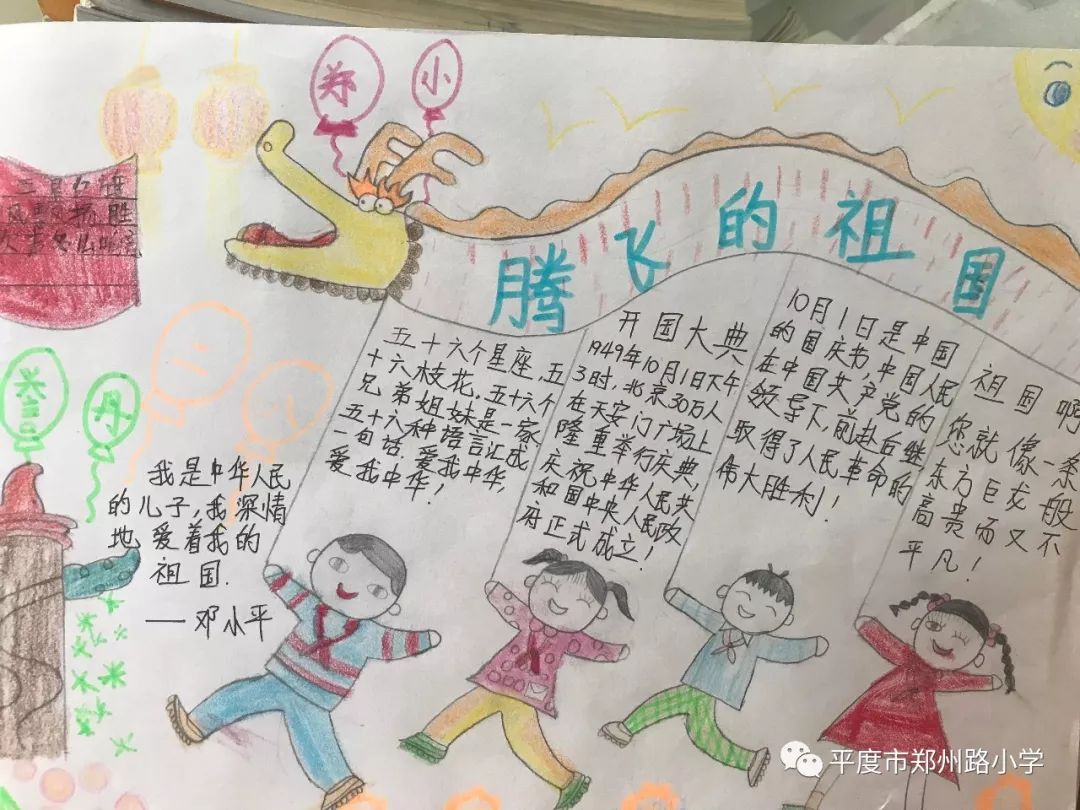 郑 小
腾飞的祖国
五十六个星座,五
十六枝花.五十六个
兄弟姐妹是一家
五十六种语言汇成
一句话,爱我中华,
爱我中华!
开国大典
1949年10月1日下午
3时.北京30万人
在天安门广场上
隆重举行庆典,
庆祝中华人民共
和国中央人民政
府正式成立!
10月1日是中国
的国庆节,中国人民
在中国共产党的
领导下,前赴后继,
取得了人民革命的
伟大胜利!
祖国啊
您就像一条
东方巨龙般
高贵而又不
平凡!
丹
我是中华人民
的儿子,我深情
地爱着我的
祖国.
——邓小平
平度市郑州路小学